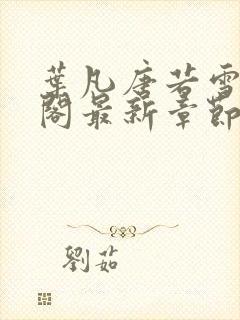 葉凡唐若雪
閣最新章節
劉茹